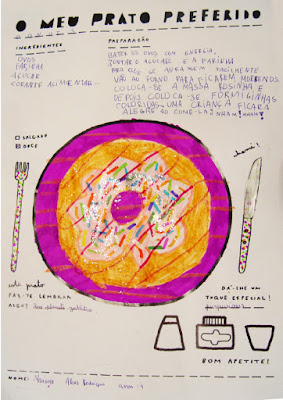 O MEU PRATO PREFERIDO
INGREDIENTES
OVOS
FARINHA
AÇUCAR
CORANTE ALIMENTAR
PREPARAÇÃO
BATER OS OVOS COM ENERGIA,
JUNTAR O AÇUCAR E A FARINHA
VÃO AO FORNO PARA FICAREM MORENOS
COLOCA-SE A MASSA ROSINHA E
DEPOIS COLOCA-SE FORMIGINHAS
COLORIDAS UMA CRIANÇA FICARÁ
ALEGRE AO COME-LA
SALGADO
DOCE
este prato
FAZ-TE LEMBRAR
ALGO?
DÁ-LHE UM
TOQUE ESPECIAL!
BOM APETITE!
NOME: Alves Rodrigues